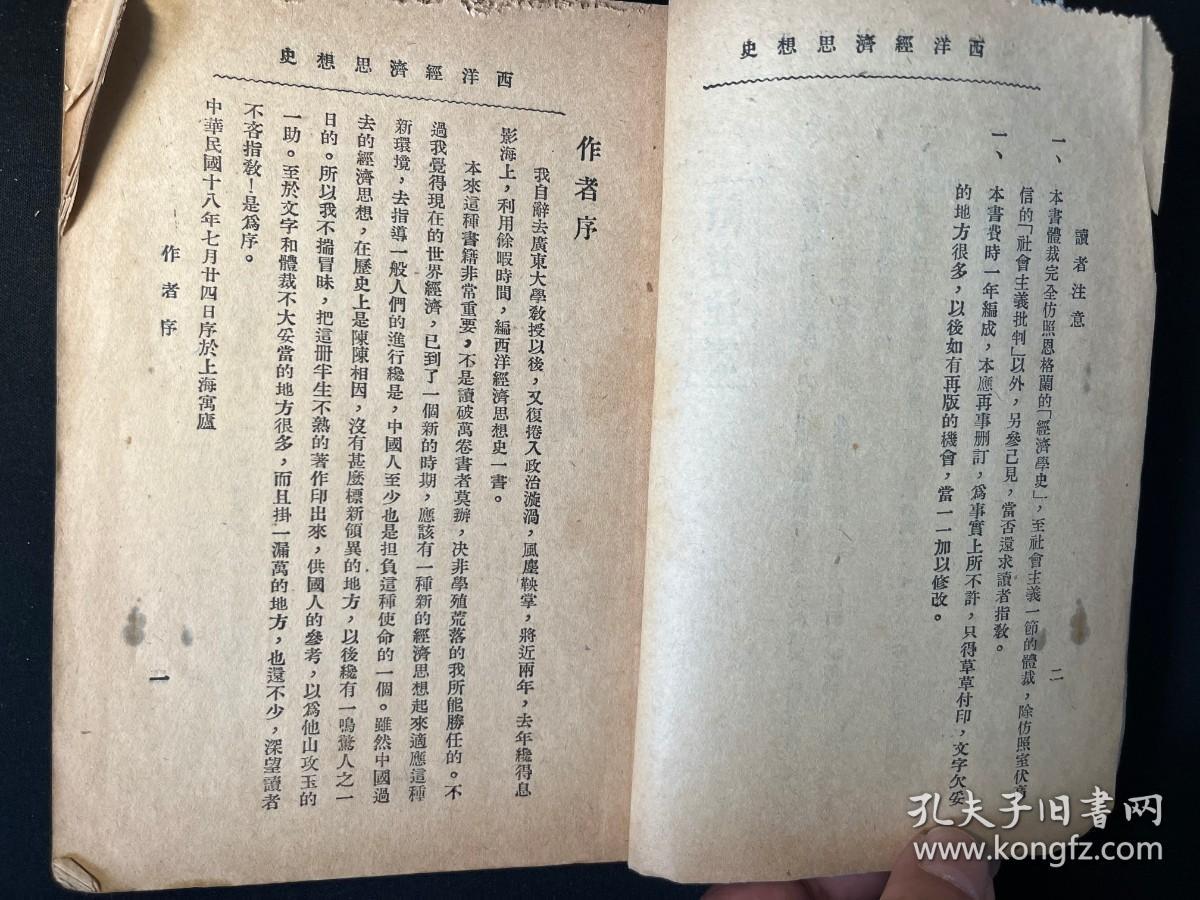 西洋經濟思想史
讀者注意
二
一、本書體裁完全仿照恩格蘭的「經濟學史」,至社會主義一節的體裁,除仿照室伏高
信的「社會主義批判」以外,另參己見,當否還求讀者指教。
一、本書費時一年編成,本應再事删訂,爲事實上所不許,只得草草付印,文字欠妥
的地方很多,以後如有再版的機會,當一一加以修改。
西洋經濟思想史
作者序
我自辭去廣東大學教授以後,又復捲入政治漩渦,風塵鞅掌,將近兩年,去年纔得息
影海上,利用餘暇時間,編西洋經濟思想史一書。
本來這種書籍非常重要,不是讀破萬卷書者莫辦,決非學殖荒落的我所能勝任的。不
過我覺得現在的世界經濟,已到了一個新的時期,應該有一種新的經濟思想起來適應這種
新環境,去指導一般人們的進行纔是,中國人至少也是担負這種使命的一個。雖然中國過
去的經濟思想,在歷史上是陳陳相因,沒有甚麼標新領異的地方,以後纔有一鳴驚人之一
日的。所以我不揣冒昧,把這册半生不熟的著作印出來,供國人的參考,以爲他山攻玉的
一助。至於文字和體裁不大妥當的地方很多,而且掛一漏萬的地方,也還不少,深望讀者
不吝指教!是爲序。
中華民國十八年七月廿四日序於上海寓廬
作者序
一
孔夫子旧书网
www.kongfz.com